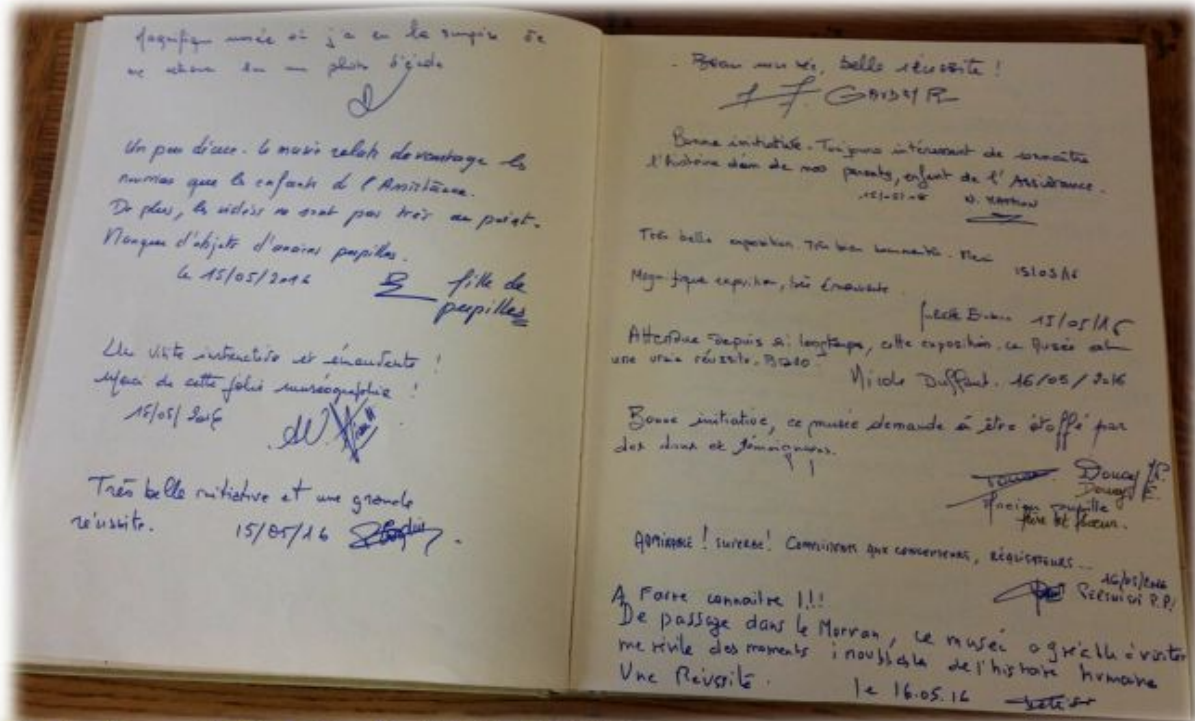 Magnifique musée où j'ai eu la surprise de
me retrouver sur une photo d'école
Un peu déçue. Le musée relate davantage les
nourrices que les enfants de l'Assistance.
De plus, les vidéos ne sont pas très au point.
Manque d'objets d'anciens pupilles.
le 15/05/2016 fille de
pupilles
Une visite instructive et émouvante !
Merci de cette jolie muséographie !
15/05/2016
Très belle initiative et une grande
réussite. 15/05/16
. Beau musée, belle réussite !
Bonne initiative. Toujours intéressant de connaître
l'histoire de nos parents, enfant de l'Assistance.
15/05/16
Très belle exposition. Très bien commentée. Merci
15/05/16
Magnifique exposition, très émouvante.
15/05/16
Attendue depuis si longtemps, cette exposition. ce Musée est
une vraie réussite. Bravo.
Nicole Duffaut. 16/05/2016
Bonne initiative, ce musée demande à être étoffé par
des dons et témoignages.
Doucey
Doucey
Ancien pupille
frère et soeur.
ADMIRABLE ! SUPERBE ! COMPLIMENTS AUX CONCEPTEURS, RÉALISATEURS...
16/05/2016
A Faire connaitre !!!
De passage dans le Morvan, ce musée agréable à visiter
me révèle des moments inoubliables de l'histoire humaine
Une Réussite. le 16.05.16